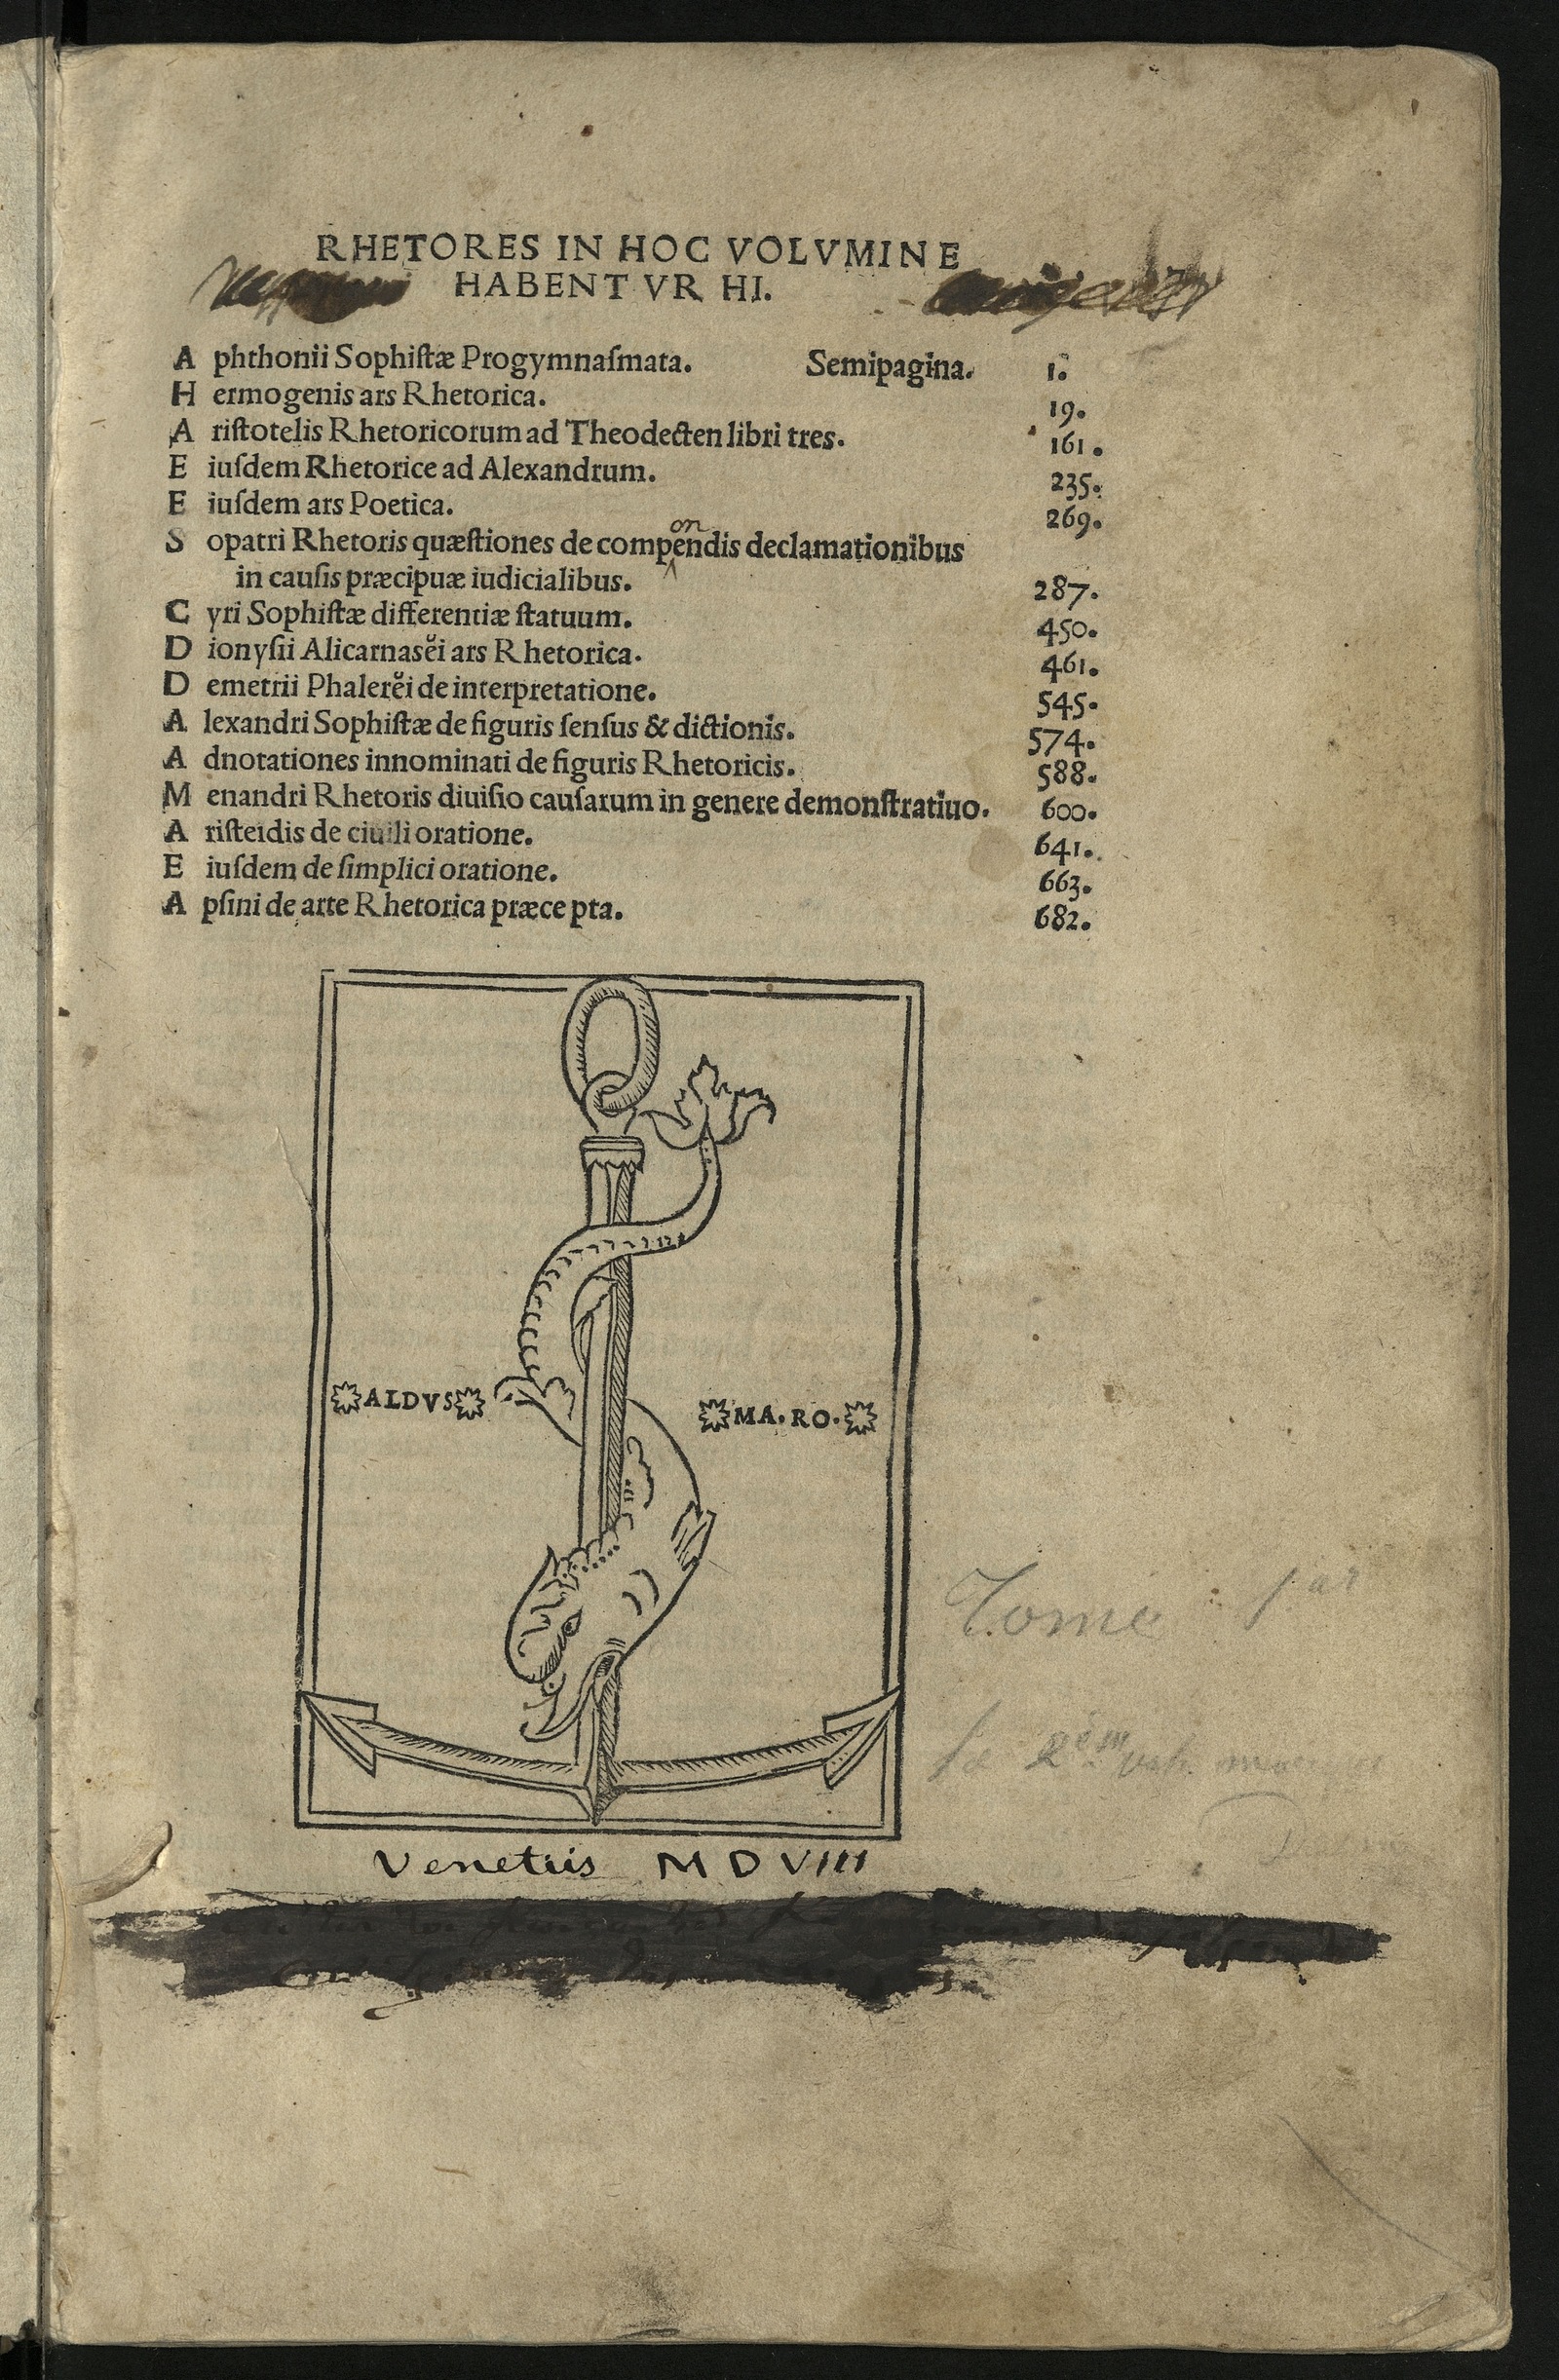 RHETORES IN HOC VOLVMINE
HABENTVR HI.
Aphthonii Sophiſtæ Progymnaſmata. Semipagina. 1.
Hermogenis ars Rhetorica. 19.
Ariſtotelis Rhetoricorum ad Theodecten libri tres. 161.
Eiuſdem Rhetorice ad Alexandrum. 235.
Eiuſdem ars Poetica. 269.
on
Sopatri Rhetoris quæſtiones de compendis declamationibus
in cauſis præcipuæ iudicialibus. 287.
Cyri Sophiſtæ differentiæ ſtatuum. 450.
Dionyſii Alicarnasĕi ars Rhetorica. 461.
Demetrii Phalerĕi de interpretatione. 545.
Alexandri Sophiſtæ de figuris ſenſus & dictionis. 574.
Adnotationes innominati de figuris Rhetoricis. 588.
Menandri Rhetoris diuiſio cauſarum in genere demonſtratiuo. 600.
Ariſteidis de ciuili oratione. 641.
Eiuſdem de ſimplici oratione. 663.
Apſini de arte Rhetorica præcepta. 682.
ALDVS MA.RO.
Tome 1er
Venetiis MDVIII